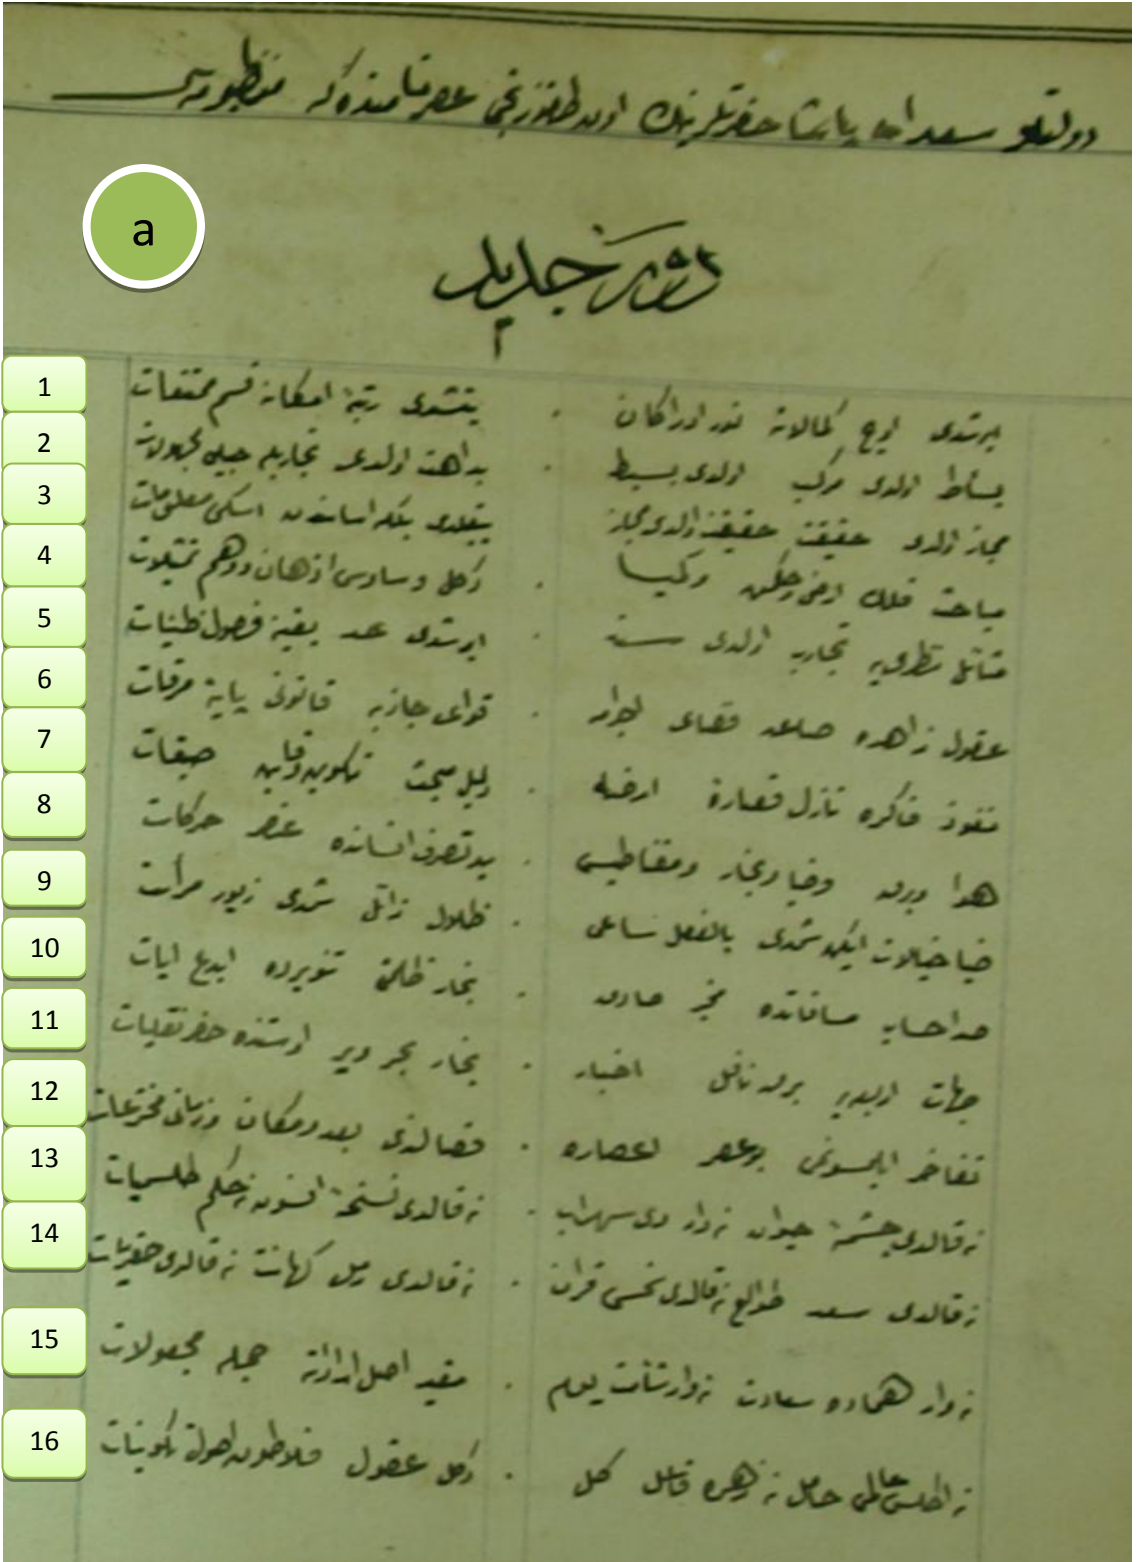 دولتلو سعدالله پاشا حضرتلرينك اون طقوزنجى عصر نامنده كه منظومه سى
دور جديد
a
1 ايرشدى اوج كمالاته نور ادراكات . يتشدى رتبۀ امكانه قسم ممتنعات
2 بسائط اولدى مركب اولدى بسيط . بداهت اولدى تجاربله خيلى مجهولات
3 مجاز اولدى حقيقت حقيقت اولدى مجاز ييقلدى بلكه اساسندن اسكى معلومات
4 مباحث فلك ارض وحكمت وكيميا . دكل وساوس اذهان ووهم تمثيلات
5 مسائل نظريه تجارب اولدى سند . ايرشدى حد يقينه فصول ظنيات
6 عقول زاهره صاعد فضاى اجرامه . قواى جاذبه قانونى پايۀ مرقات
7 نفوذ فاكره نازل ارضه . دليل مبحث تكوين طبقات
8 هوا وبرق وضيا وبخار ومقناطيس . يد تصرف انسانده عنصر حركات
9 ضيا خيالات ايكن شمدى بالفعل ساعى . ظلال زائل شمدى زيور مرأت
10 صدا حساب مسافاتده مخبر صادق . بخار ظلمت تنويرده ابدع ايات
11 جهات اربعه يه برق ناقل اخبار . بخار بحر وبر اوستنده خضر نقليات
12 تفاخر ايلمسونمى بوعصر اعصاره . قصالدى بعد ومكان وزمانى مخترعات
13 نه قالدى چشمۀ حيوان نه وار ديو سهراب . نه قالدى نسخۀ افسون نه حكم طلسميات
14 نه قالدى سعد طوالع نه قالدى نحس قران . نه قالدى رمل كهانت نه قالدى جفريات
15 نه وار هماده سعادت نه وار شئامت بوم . مقيد اصل اراداته جمله مجعولات
16 نه اطلس عالمى حامل نه زهره فاعل كل . دكل عقول فلاطون اصول تكوينات